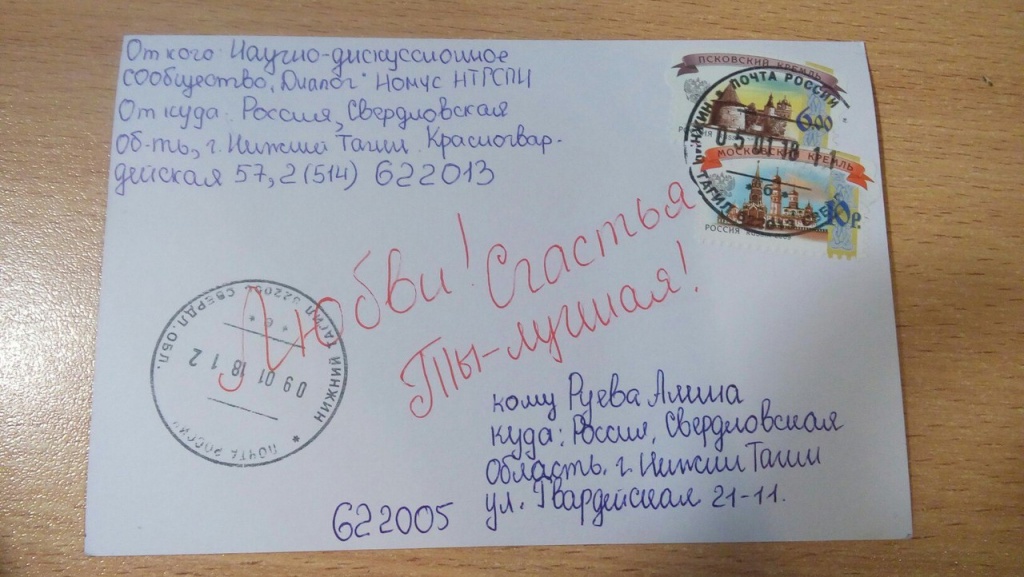 От кого Научно-дискуссионное
сообщество „Диалог" НОМУС НТГСПИ
Откуда: Россия, Свердловская
Об-ть, г. Нижний Тагил Красногвар-
дейская 57, 2 (514) 622013
ПСКОВСКИЙ КРЕМЛЬ
6,00
РОССИЯ
МОСКОВСКИЙ КРЕМЛЬ
10 р.
РОССИЯ
ПОЧТА РОССИИ
НИЖНИЙ ТАГИЛ
05 01 18
6
Любви! Счастья
Ты - лучшая!
НИЖНИЙ ТАГИЛ СВЕРДЛ. ОБЛ.
09 01 18 1 2
ПОЧТА РОССИИ
кому Руева Алина
куда: Россия, Свердловская
область. г. Нижний Тагил
ул. Гвардейская 21-11.
622005